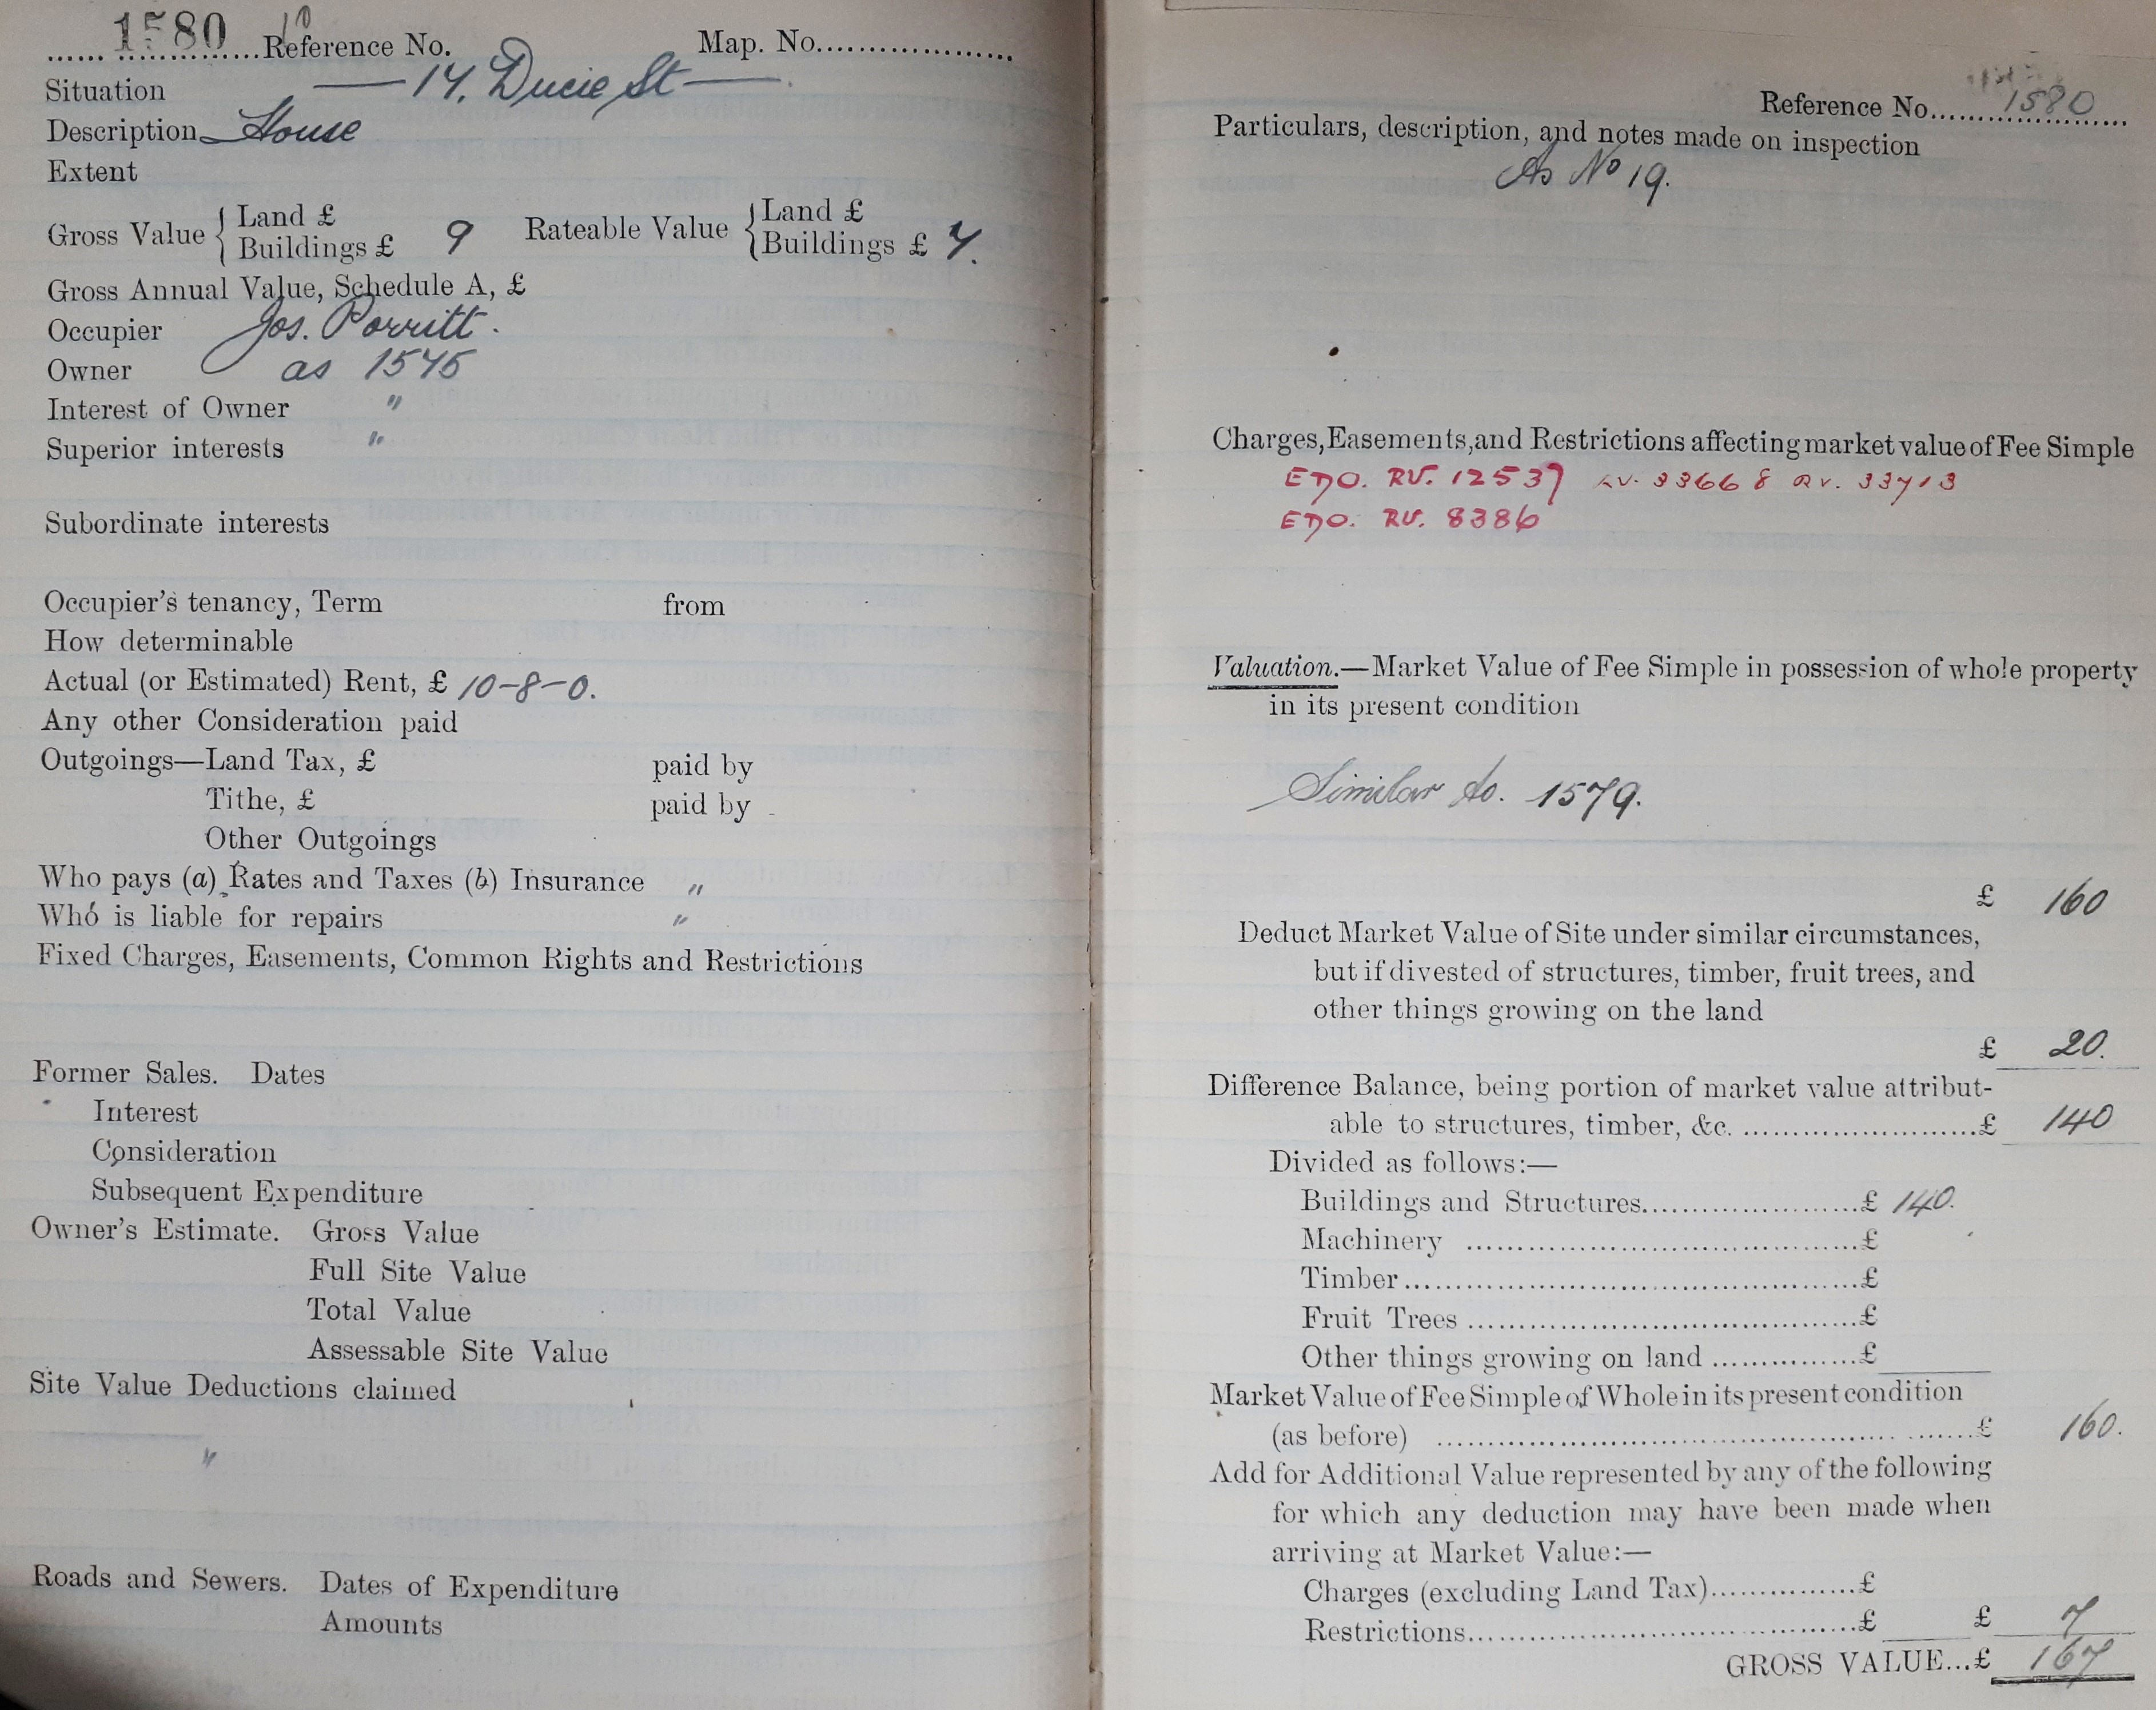 1580 10
Reference No. Map. No.
Situation — 17, Ducie St —
Description House
Extent
Gross Value { Land £
Buildings £ 9 Rateable Value { Land £
Buildings £ 7.
Gross Annual Value, Schedule A, £
Occupier Jos. Porritt.
Owner as 1575
Interest of Owner "
Superior interests "
Subordinate interests
Occupier's tenancy, Term from
How determinable
Actual (or Estimated) Rent, £ 10-8-0.
Any other Consideration paid
Outgoings—Land Tax, £ paid by
Tithe, £ paid by
Other Outgoings
Who pays (a) Rates and Taxes (b) Insurance "
Who is liable for repairs "
Fixed Charges, Easements, Common Rights and Restrictions
Former Sales. Dates
Interest
Consideration
Subsequent Expenditure
Owner's Estimate. Gross Value
Full Site Value
Total Value
Assessable Site Value
Site Value Deductions claimed
"
Roads and Sewers. Dates of Expenditure
Amounts
Reference No. 1580
Particulars, description, and notes made on inspection
As No 19.
Charges, Easements, and Restrictions affecting market value of Fee Simple
RV. 12537 RV. 33668 RV. 33713
RV. 8386
Valuation.—Market Value of Fee Simple in possession of whole property
in its present condition
Similar to. 1579.
£ 160
Deduct Market Value of Site under similar circumstances,
but if divested of structures, timber, fruit trees, and
other things growing on the land
£ 20.
Difference Balance, being portion of market value attribut-
able to structures, timber, &c. £ 140
Divided as follows:—
Buildings and Structures £ 140.
Machinery £
Timber £
Fruit Trees £
Other things growing on land £
Market Value of Fee Simple of Whole in its present condition
(as before) £ 160.
Add for Additional Value represented by any of the following
for which any deduction may have been made when
arriving at Market Value:—
Charges (excluding Land Tax) £
Restrictions £ £ 7
GROSS VALUE...£ 167